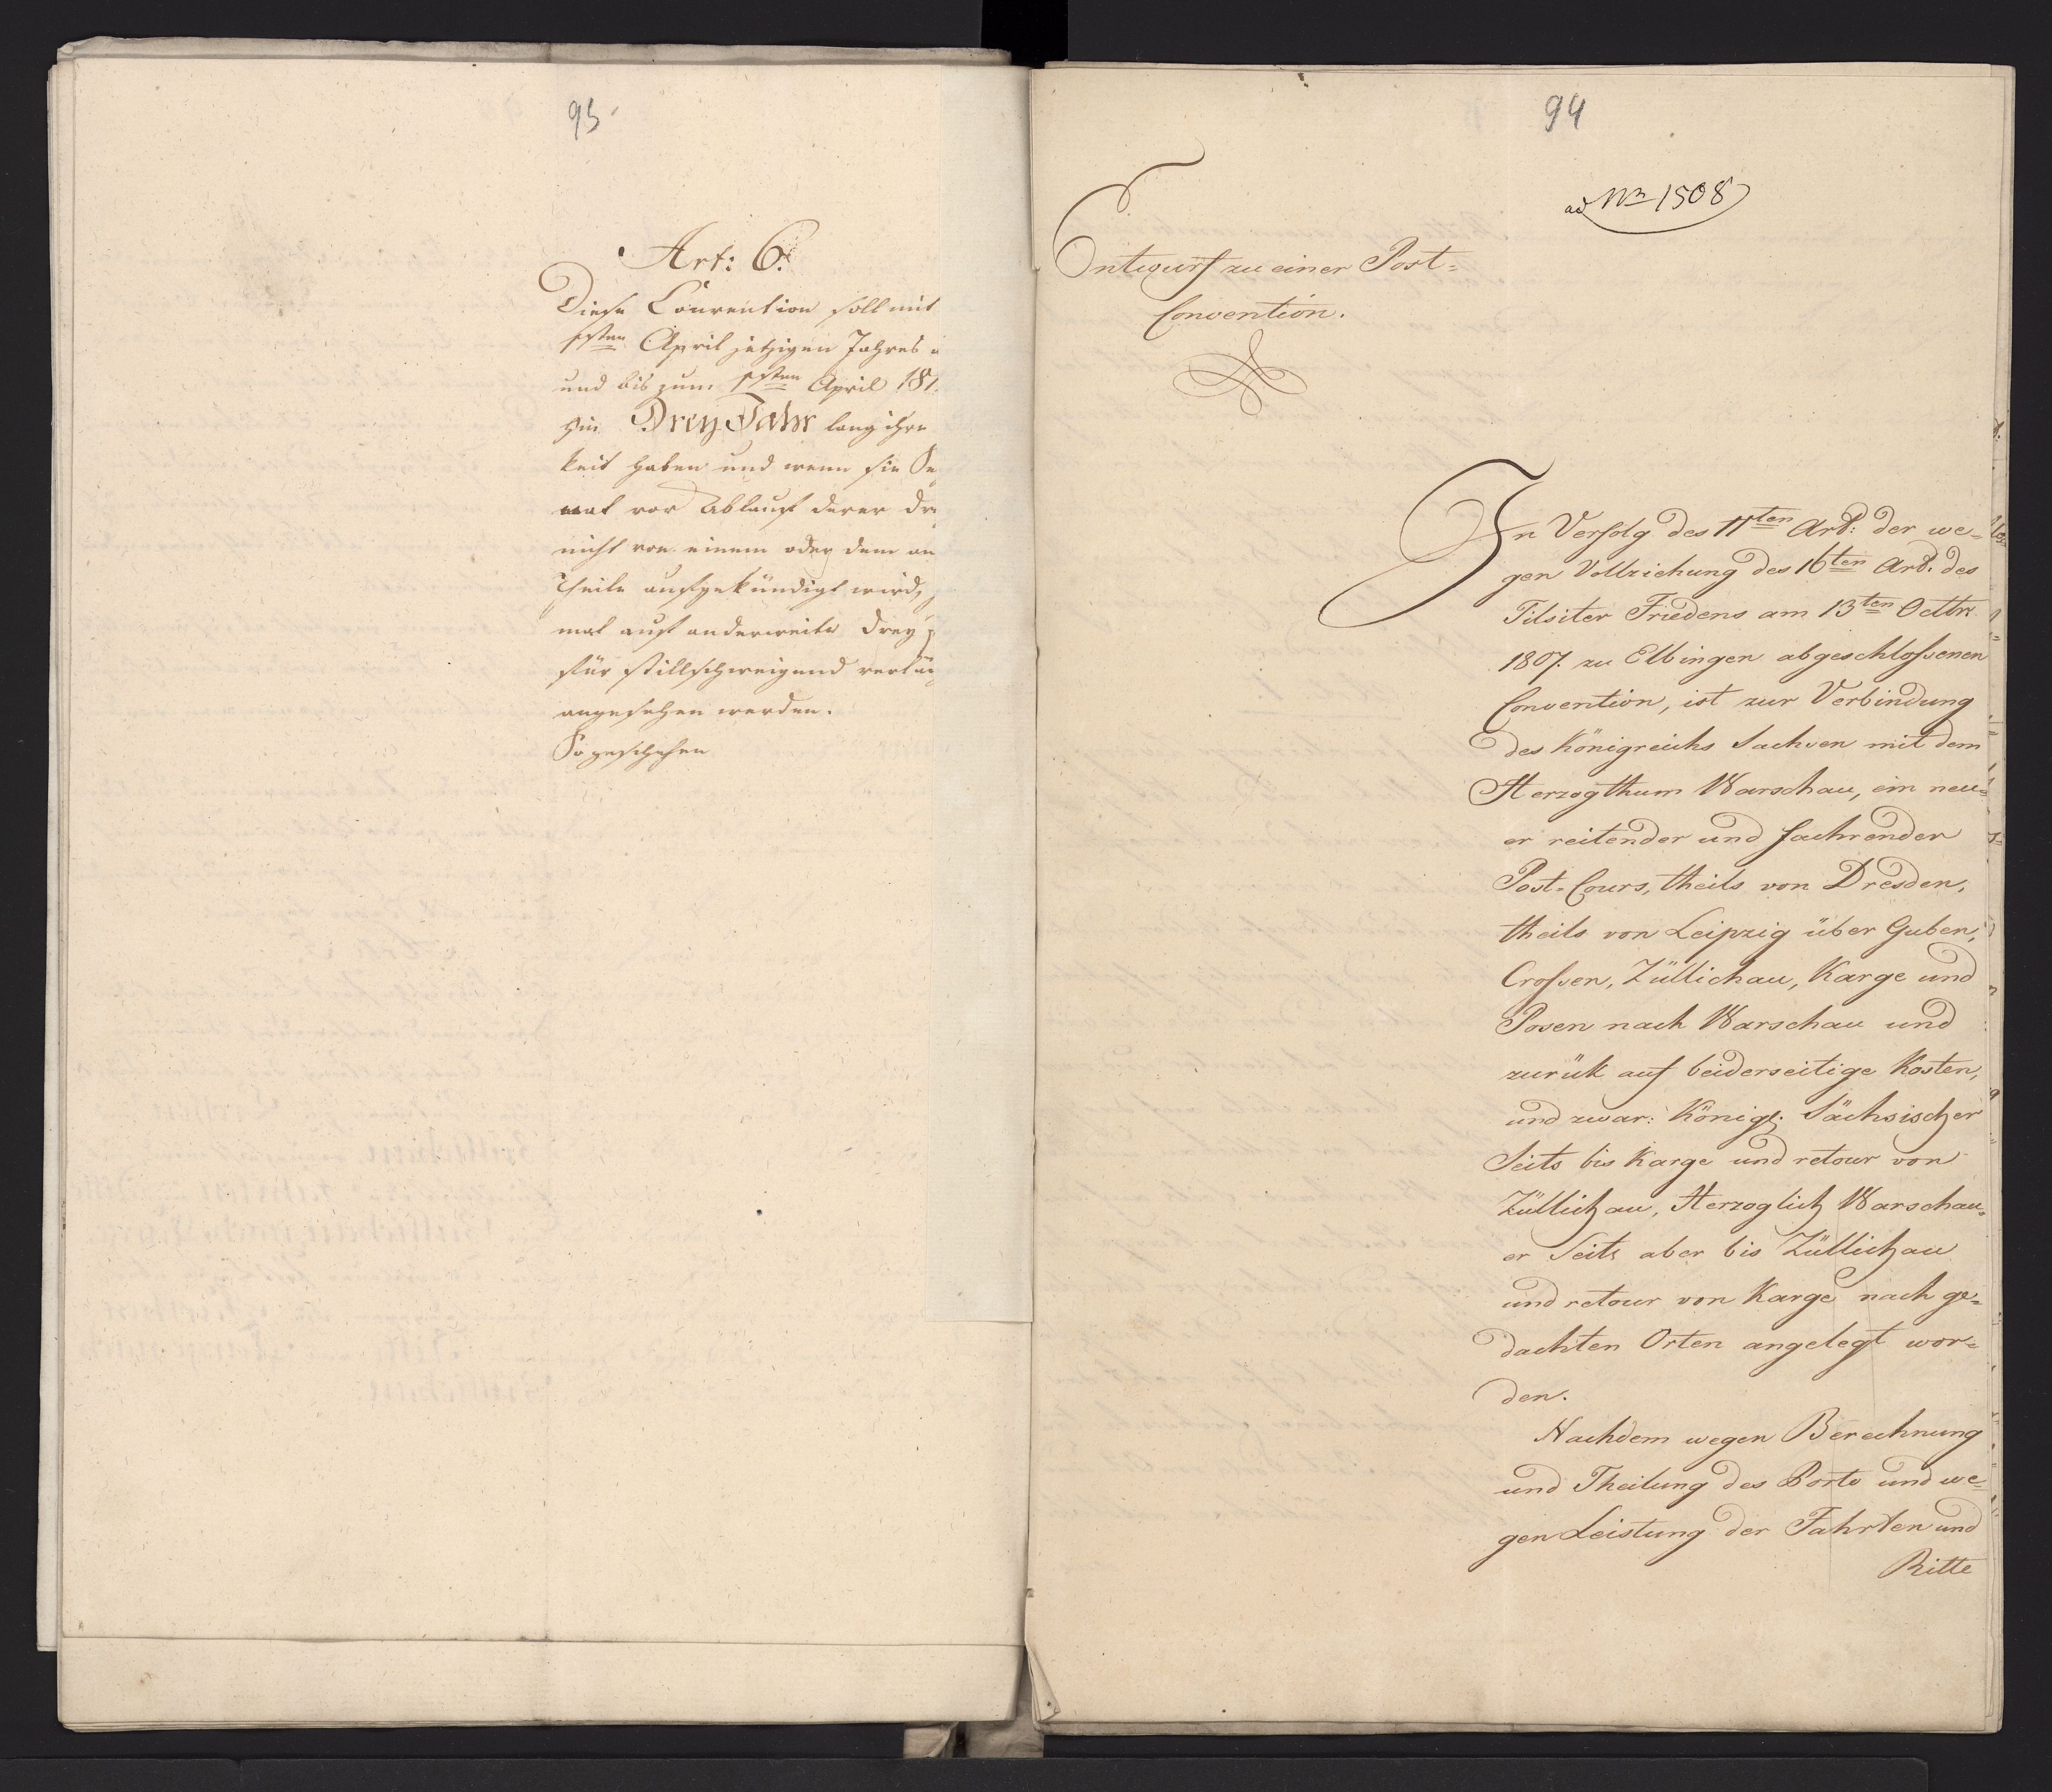 93
Art: 6.
Diese Convention soll mit
1sten April jetzigen Jahres
und bis zum 1sten April 181
hin Drey Jahr lang ihre
keit haben und wenn sie
nat vor Ablauf derer
nicht von einem oder dem an
Theile aufgekündigt wird,
mal auf anderweite drey
für stillschweigend verlän
angesehen werden.
So geschehen
94
ad Nr. 1508
Entwurf zu einer Post-
Convention.
In Verfolg des 11ten Art: der we=
gen Vollziehung des 16ten Art. des
Tilsiter Friedens am 13ten Octbr.
1807. zu Elbingen abgeschloßenen
Convention, ist zur Verbindung
des Königreichs Sachsen mit dem
Herzogthum Warschau, ein neu=
er reitender und fachrender
Post-Cours, theils von Dresden,
theils von Leipzig über Guben,
Croßen, Züllichau, Karge und
Posen nach Warschau und
zurük auf beiderseitige Kosten,
und zwar: Königl. Sächsischer
Seits bis Karge und retour von
Züllichau, Herzoglich Warschau=
er Seits aber bis Züllichau
und retour von Karge nach ge=
dachten Orten angelegt wor=
den.
Nachdem wegen Berechnung
und Theilung des Porto und we=
gen Leistung der Fahrten und
Ritte